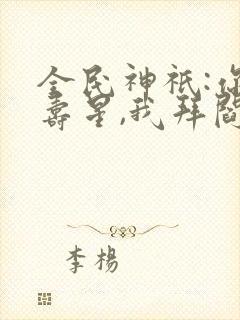 全民神祇:你
寿星,我拜阎
李杨